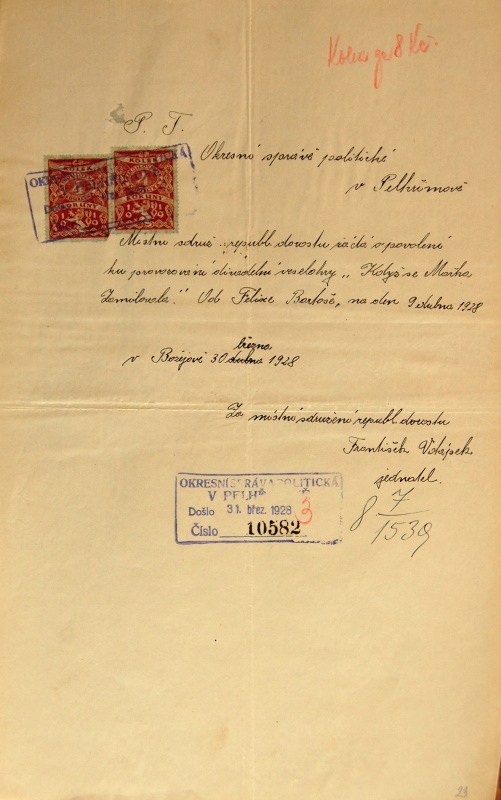 Kolky za 8 Kč.
P. T.
Okresní správě politické
v Pelhřimově
KOLEK
KOLEK
KORUNY
KORUNY
Místní sdruž. republ. dorostu žádá o povolení
ku provozování divadelní veselohry „Když se Mařka
zamilovala." Od Felixe Bartoše, na den 9 dubna 1928
března
v Božejově 30 dubna 1928
Za místní sdružení republ. dorostu
František
jednatel.
OKRESNÍ SPRÁVA POLITICKÁ
V PELHŘ
Došlo 31. břez. 1928 3
Číslo 10582
8 7
1539
23